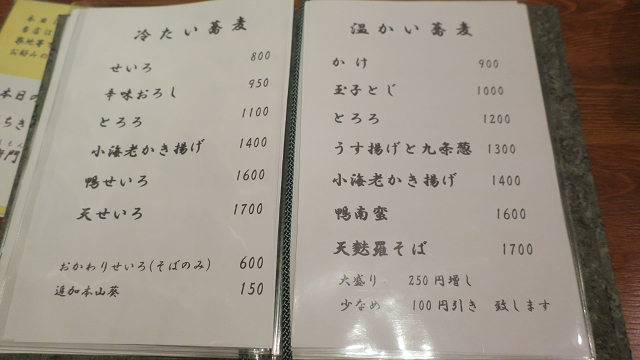 冷たい蕎麦
せいろ 800
辛味おろし 950
とろろ 1100
小海老かき揚げ 1400
鴨せいろ 1600
天せいろ 1700
おかわりせいろ(そばのみ) 600
追加本山葵 150
温かい蕎麦
かけ 900
玉子とじ 1000
とろろ 1200
うす揚げと九条葱 1300
小海老かき揚げ 1400
鴨南蛮 1600
天麩羅そば 1700
大盛り 250円増し
少なめ 100円引き 致します
本日の